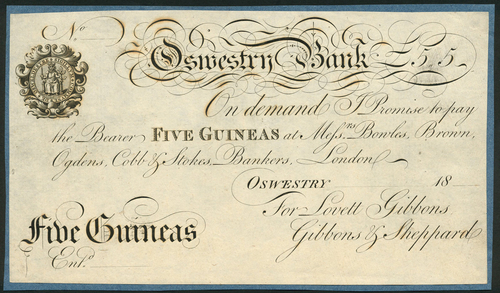 No
Oswestry Bank £5,5
On demand I Promise to pay
the Bearer FIVE GUINEAS at Messrs Bowles, Brown,
Ogdens, Cobb & Stokes, Bankers, London
OSWESTRY 18
For Lovett Gibbons
Five Guineas Gibbons & Sheppard
Entd